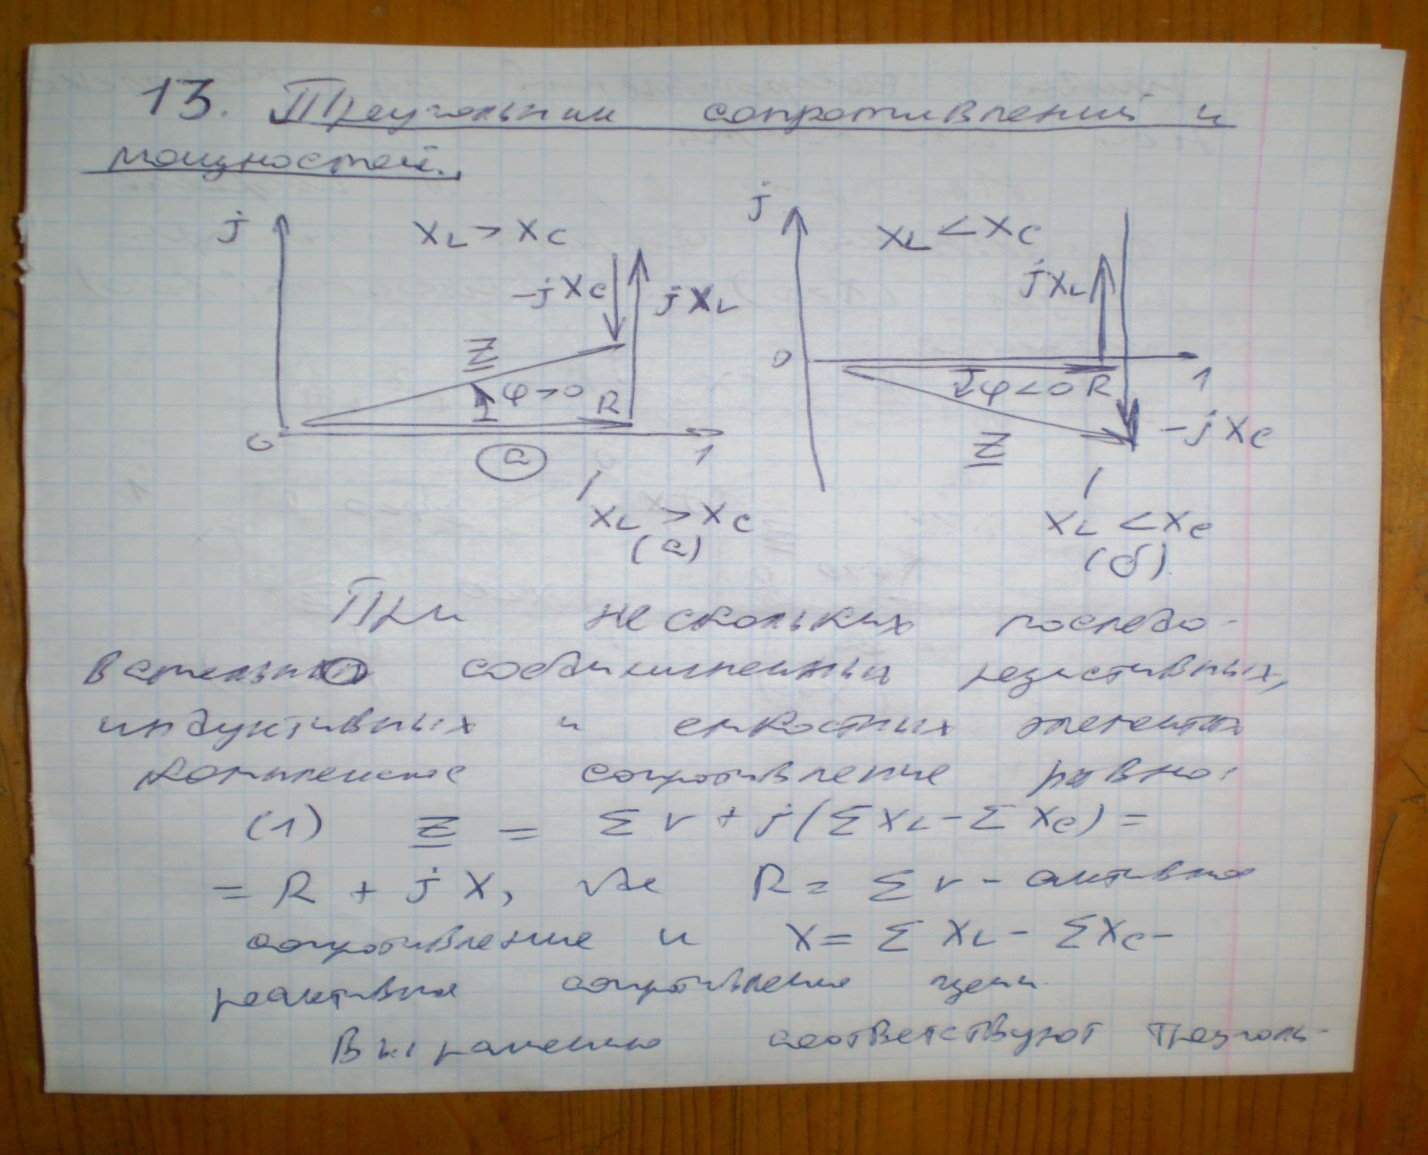 13. Треугольники сопротивлений и
мощностей.
j XL > XC
-jXC jXL
Z
φ>0 R
0 1
а
XL > XC
(а)
j XL < XC
jXL
0 1
φ<0 R
-jXC
Z
XL < XC
(б)
При нескольких последо-
вательно соединенных резистивных,
индуктивных и емкостных элементах
комплексное сопротивление равно:
(1) Z = Σr + j(ΣXL - ΣXC) =
= R + jX, где R = Σr - активное
сопротивление и X = ΣXL - ΣXC -
реактивное сопротивление цепи.
Выражению соответствуют треуголь-